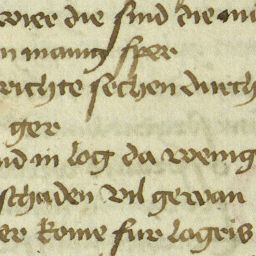 wer die sind die
n maniig sper
richte sechen durch
ger
nd in log da wenig
schaden vil gewan
er kome fur logris